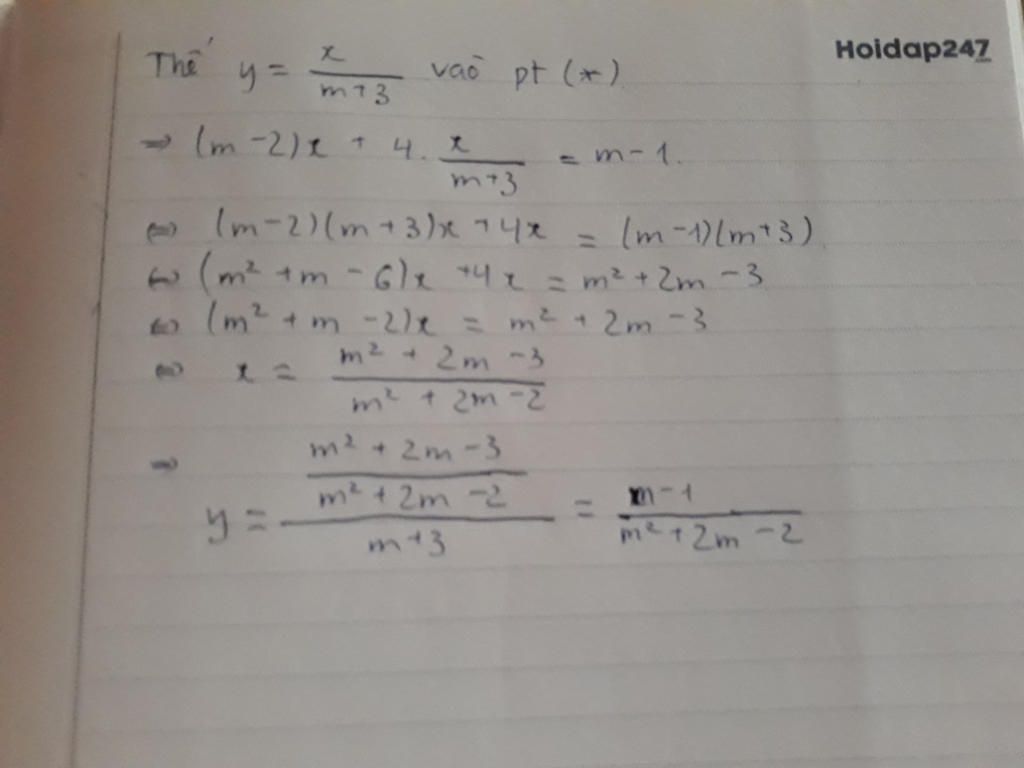 Hoidap247
Thế y = x/(m+3) vaò pt (*)
⇒ (m-2)x + 4. x/(m+3) = m-1.
⇔ (m-2)(m+3)x +4x = (m-1)(m+3)
⇔ (m² + m - 6)x +4x = m² + 2m - 3
⇔ (m² + m - 2)x = m² + 2m - 3
⇔ x = (m² + 2m - 3)/(m² + 2m - 2)
⇒ y = ((m² + 2m - 3)/(m² + 2m - 2))/(m+3) = (m-1)/(m² + 2m - 2)